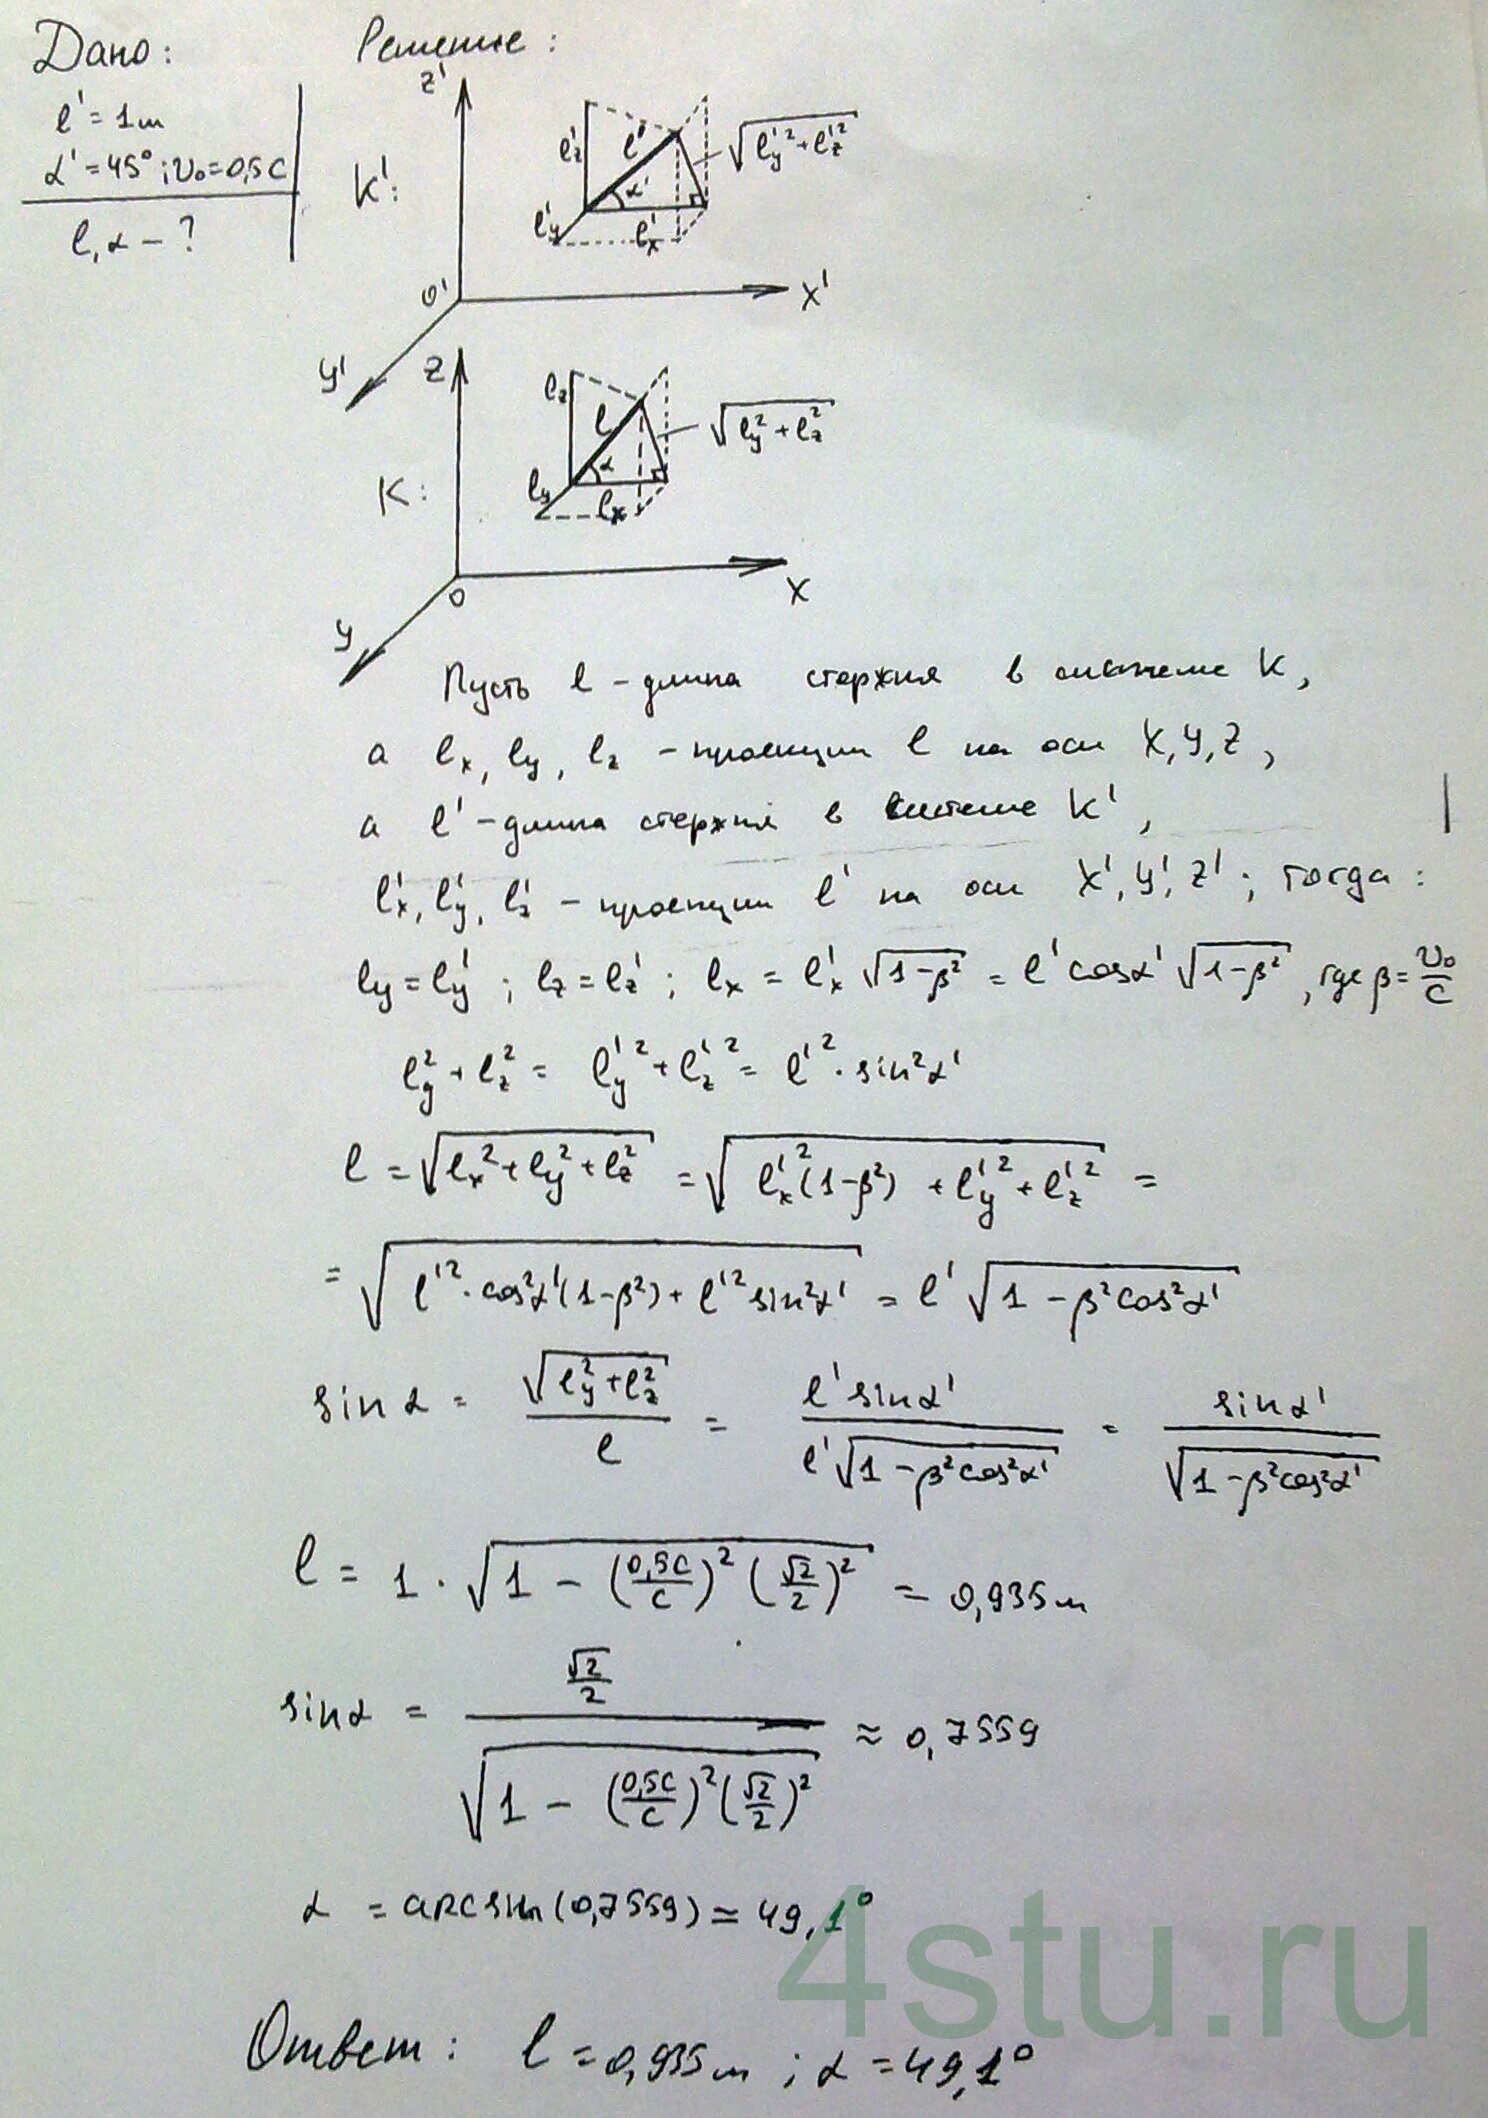 Дано:
Решение:
l' = 1м
α' = 45°; v₀ = 0,5c
l, α - ?
K':
Z'
l'z
l'
α'
√(l'y² + l'z²)
l'y
l'x
O'
X'
Y'
K:
Z
lz
l
α
√(ly² + lz²)
ly
lx
O
X
Y
Пусть l - длина стержня в системе K,
а lx, ly, lz - проекции l на оси X, Y, Z,
а l' - длина стержня в системе K',
l'x, l'y, l'z - проекции l' на оси X', Y', Z'; тогда:
ly = l'y; lz = l'z; lx = l'x √(1-β²) = l' cosα' √(1-β²), где β = v₀/c
ly² + lz² = l'y² + l'z² = l'² · sin²α'
l = √(lx² + ly² + lz²) = √(l'x²(1-β²) + l'y² + l'z²) =
= √(l'² · cos²α'(1-β²) + l'² sin²α') = l' √(1 - β²cos²α')
sin α = √(ly² + lz²)/l = l' sinα'/(l'√(1 - β²cos²α')) = sinα'/√(1 - β²cos²α')
l = 1 · √(1 - (0,5c/c)² (√2/2)²) = 0,935м
sinα = (√2/2)/√(1 - (0,5c/c)² (√2/2)²) ≈ 0,7559
α = arcsin(0,7559) ≃ 49,1°
Ответ: l = 0,935м; α = 49,1°
4stu.ru